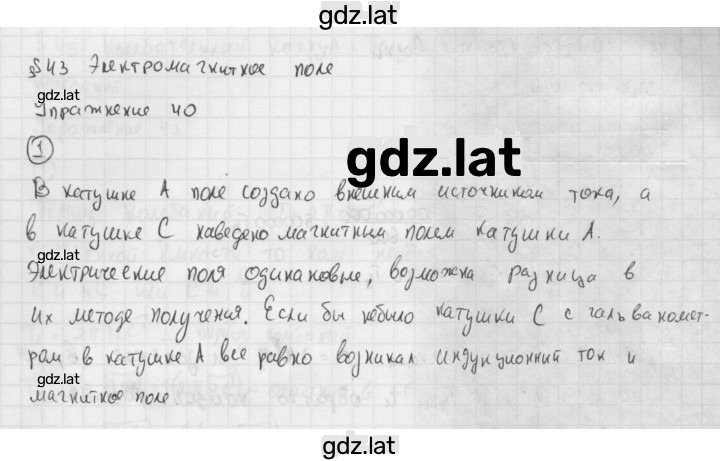 gdz.lat
§43 Электромагнитное поле
gdz.lat
Упражнение 40
gdz.lat
1
В катушке А поле создано внешним источником тока, а
в катушке С наведено магнитным полем катушки А.
gdz.lat
Электрические поля одинаковые, возможна разница в
их методе получения. Если бы небыло катушки С с гальваномет-
ром в катушке А все равно возникал индукционный ток и
gdz.lat
магнитное поле.
gdz.lat